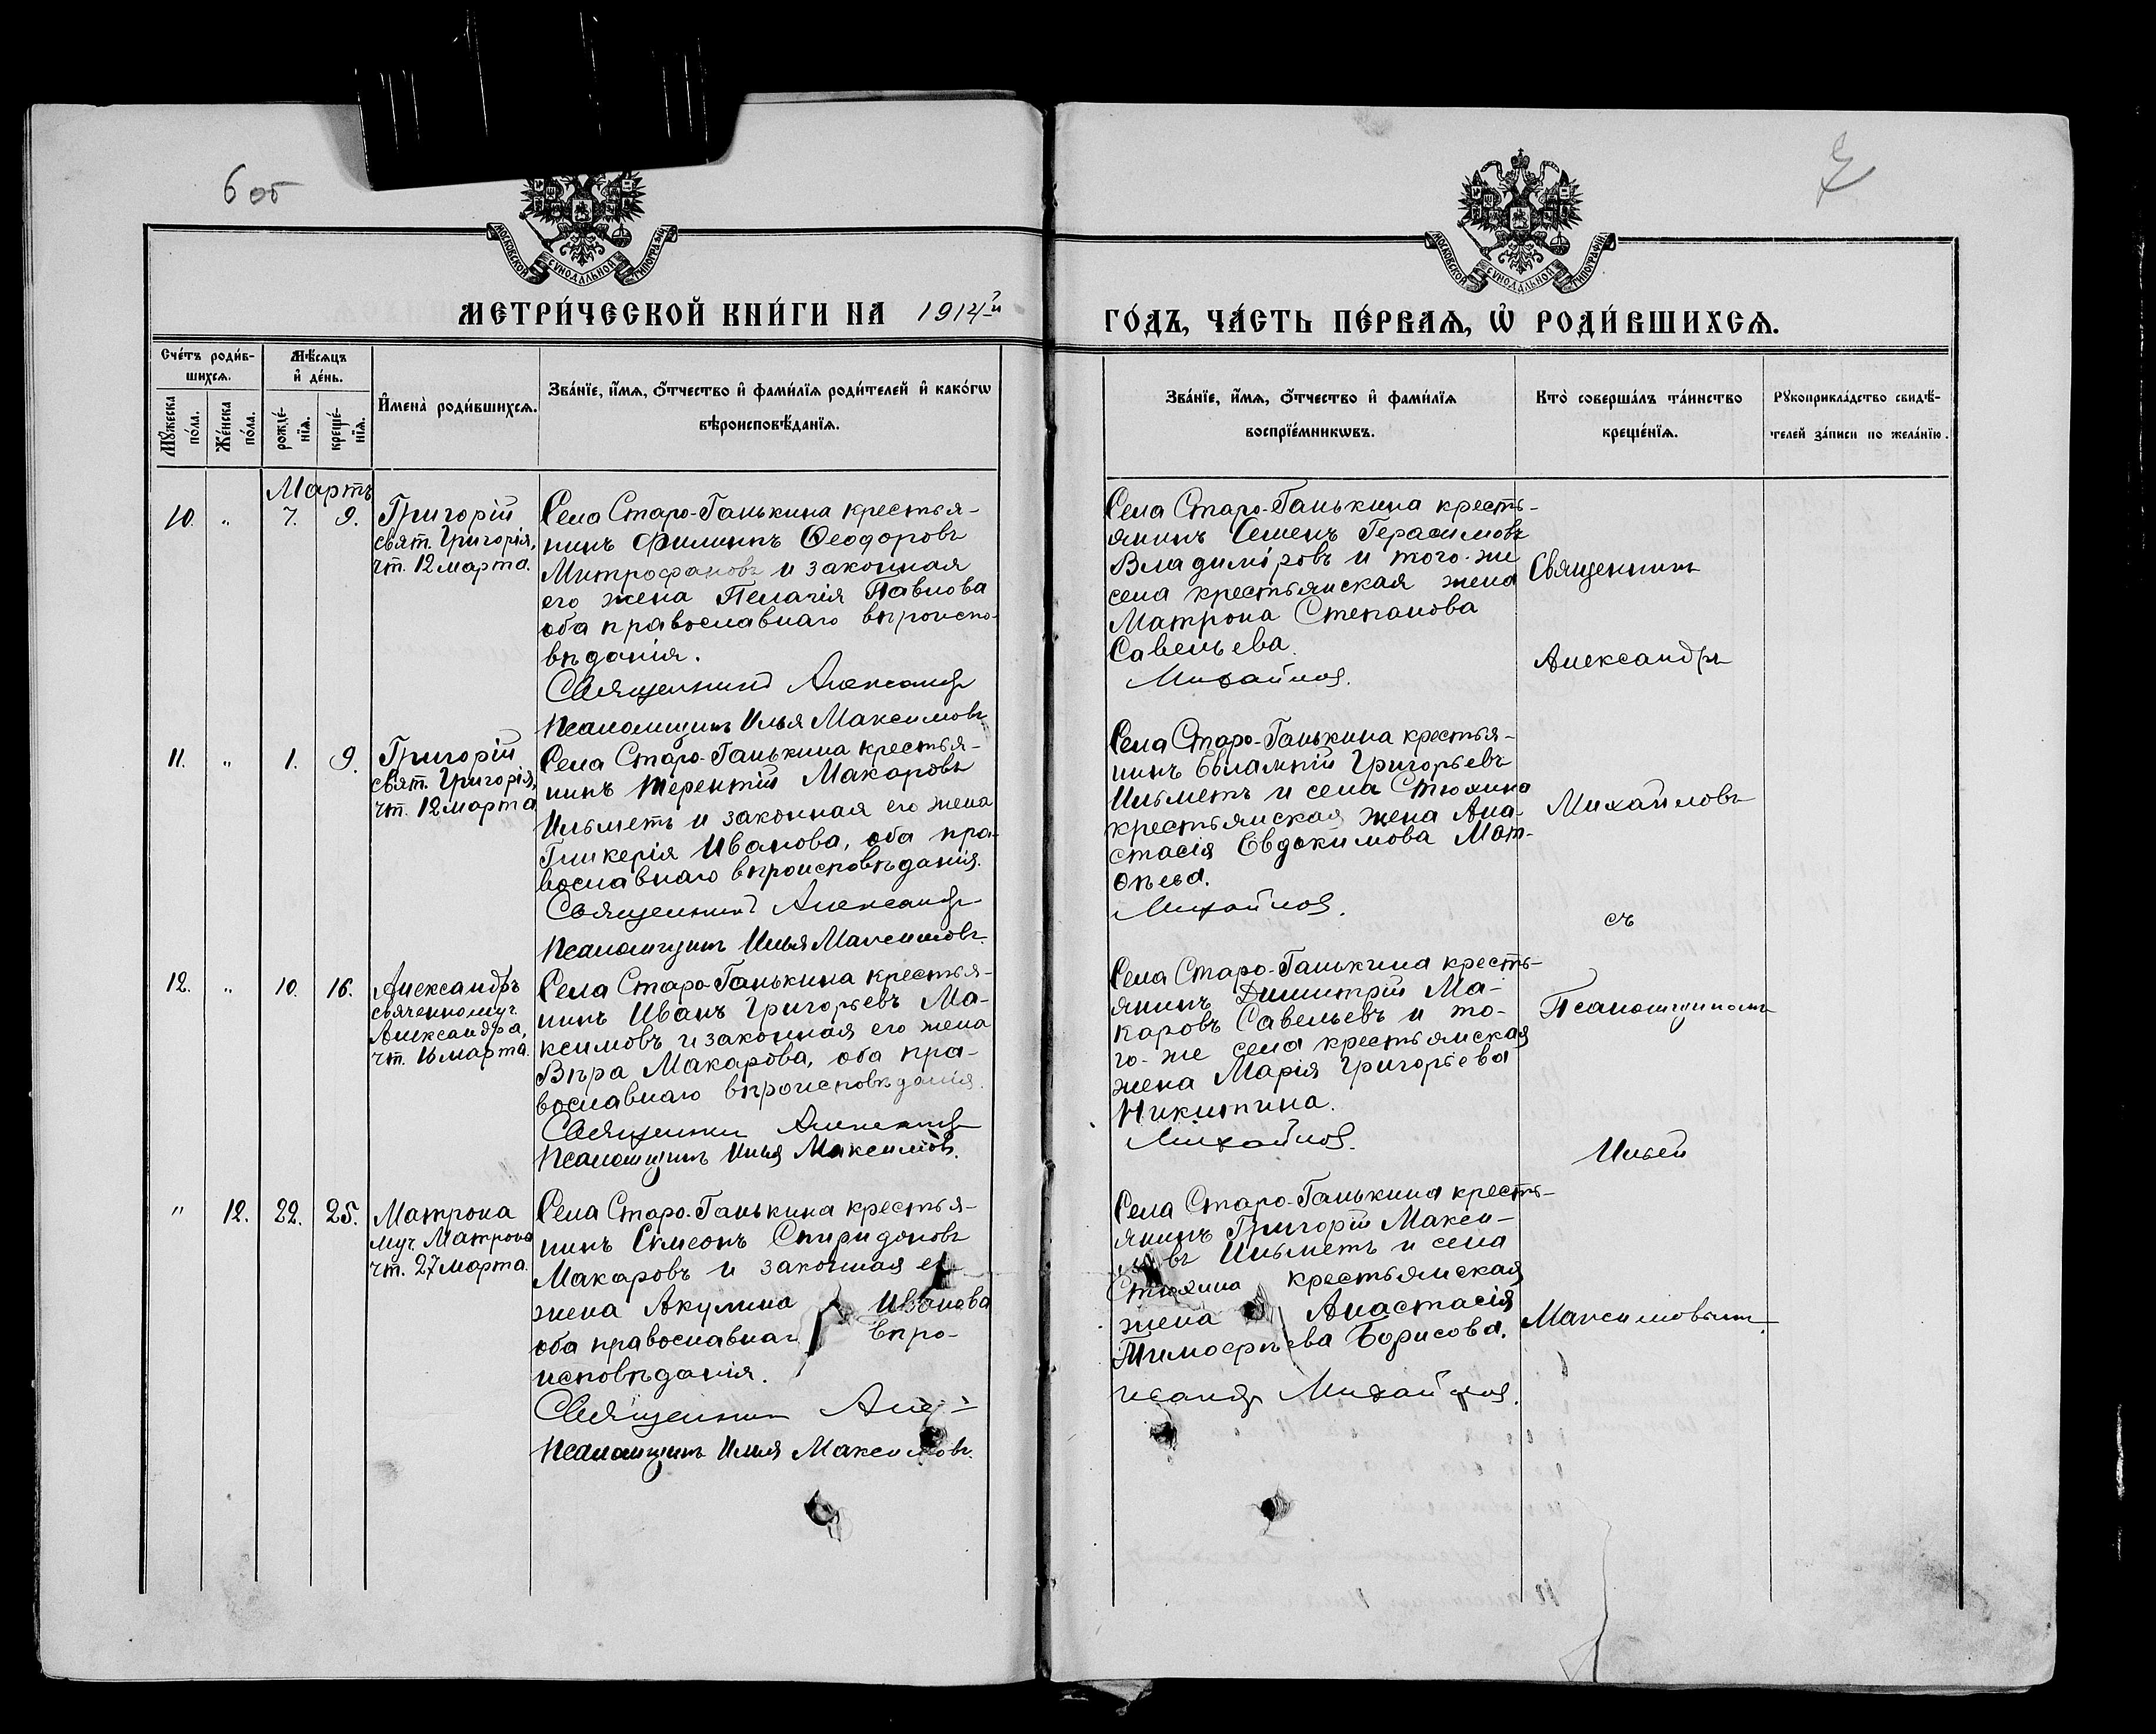 6 об
7
МОСКОВСКОЙ СѴНОДАЛЬНОЙ ТИПОГРАФІИ
МОСКОВСКОЙ СѴНОДАЛЬНОЙ ТИПОГРАФІИ
МЕТРИ́ЧЕСКОЙ КНИ́ГИ НА 1914й
ГО́ДЪ, ЧА́СТЬ ПЕ́РВАѦ, Ѡ РОДИ́ВШИХСѦ.
Сче́тъ роди́в-
шихсѧ.
Мѣ́сѧцъ
и҆ де́нь.
И҆мена̀ роди́вшихсѧ.
Зва́нїе, и҆́мѧ, ѻ҆́тчество и҆ фами́лїѧ роди́телей и҆ како́гѡ
вѣроисповѣ́данїѧ.
Мꙋ́жеска
по́ла.
Же́нска
по́ла.
рожде́-
нїѧ.
креще́-
нїѧ.
Зва́нїе, и҆́мѧ, ѻ҆́тчество и҆ фами́лїѧ
воспрїе́мникѡвъ.
Кто̀ соверша́лъ та́инство
креще́нїѧ.
Рꙋкоприкла́дство свидѣ́-
телей за́писи по жела́нїю.
Мартъ
10. " 7. 9.
Григорій
свят. Григорія,
чт. 12 марта.
Села Старо-Ганькина крестья-
нинъ Филиппъ Ѳеодоровъ
Митрофановъ и законная
его жена Пелагія Павлова
оба православнаго вѣроиспо-
вѣданія.
Священникъ Александр
Псаломщикъ Илья Максимовъ.
Села Старо-Ганькина кресть-
янинъ Семенъ Герасимовъ
Владиміровъ и того-же
села крестьянская жена
Матрона Степанова
Савельева.
Михайлов.
11. " 1. 9.
Григорій
свят. Григорія,
чт. 12 марта
Села Старо-Ганькина крестья-
нинъ Терентій Макаровъ
Ильметь и законная его жена
Гликерія Иванова, оба пра-
вославнаго вѣроисповѣданія.
Священникъ Александр
Псаломщикъ Илья Максимовъ.
Села Старо-Ганькина крестья-
нинъ Евлампій Григорьевъ
Ильметь и села Стюхина
крестьянская жена Ана-
стасія Евдокимова Мат-
ѳѣева.
Михайлов.
12. " 10. 16.
Александръ
священномуч.
Александра,
чт. 16 марта.
Села Старо-Ганькина крестья-
нинъ Иванъ Григорьевъ Ма-
ксимовъ и законная его жена
Вѣра Макарова, оба пра-
вославнаго вѣроисповѣданія.
Священник Александр
Псаломщикъ Илья Максимовъ.
Села Старо-Ганькина кресть-
янинъ Димитрій Ма-
каровъ Савельевъ и то-
го-же села крестьянская
жена Марія Григорьева
Никитина.
Михайлов.
" 12. 22. 25.
Матрона
муч. Матроны
чт. 27 марта.
Села Старо-Ганькина крестья-
нинъ Симеонъ Спиридоновъ
Макаровъ и законная ег
жена Акулина Иванова
оба православнаг вѣро-
исповѣданія.
Священник Алек-
Псаломщикъ Илья Максимовъ.
Села Старо-Ганькина кресть-
янинъ Григорій Макси-
мовъ Ильметь и села
Стюхина крестьянская
жена Анастасія
Тимофѣева Борисова.
ксандр Михайлов.
Священникъ
Александръ
Михайловъ
съ
Псаломщикомъ
Ильей
Максимовымъ.